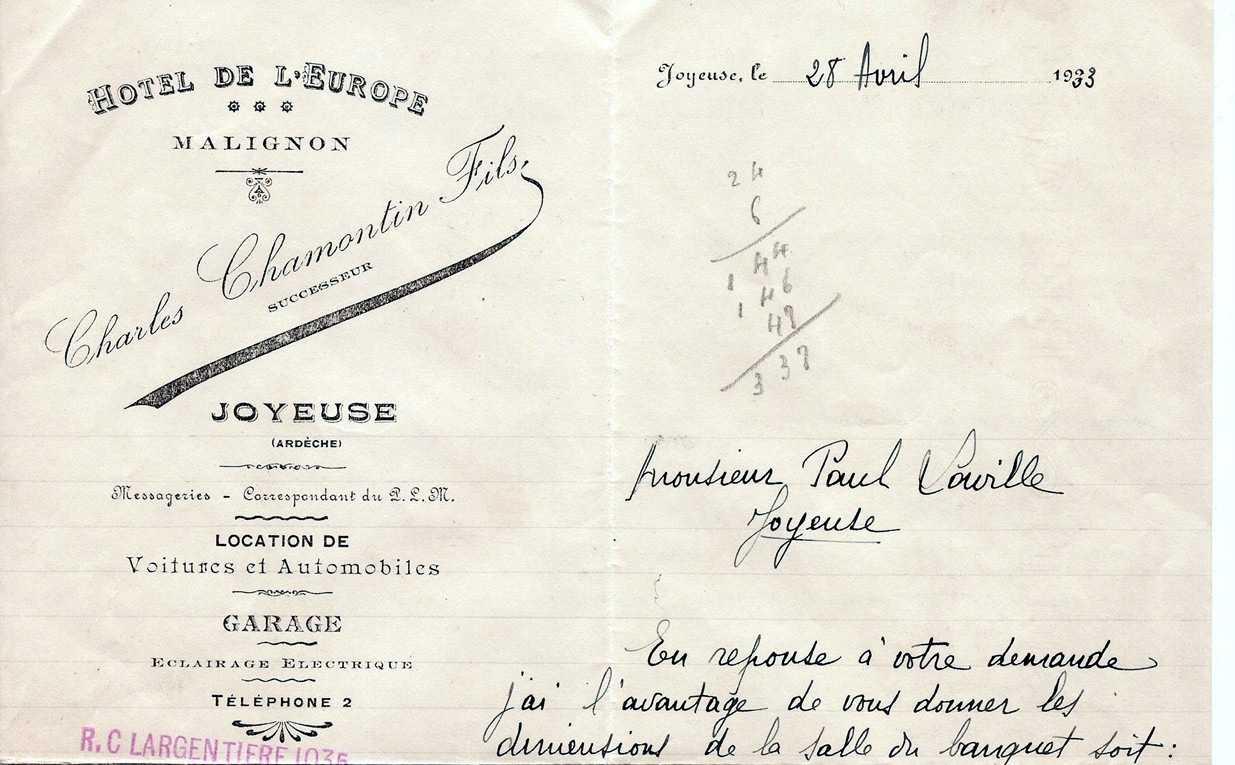 HOTEL DE L'EUROPE
MALIGNON
Charles Chamontin Fils
SUCCESSEUR
JOYEUSE
(ARDÈCHE)
Messageries - Correspondant du P.L.M.
LOCATION DE
Voitures et Automobiles
GARAGE
ECLAIRAGE ELECTRIQUE
TÉLÉPHONE 2
R.C LARGENTIERE 1035
Joyeuse, le 28 Avril 1933
24
6
144
146
48
338
Monsieur Paul Laville
Joyeuse
En reponse à votre demande
j'ai l'avantage de vous donner les
dimensions de la salle du banquet soit :